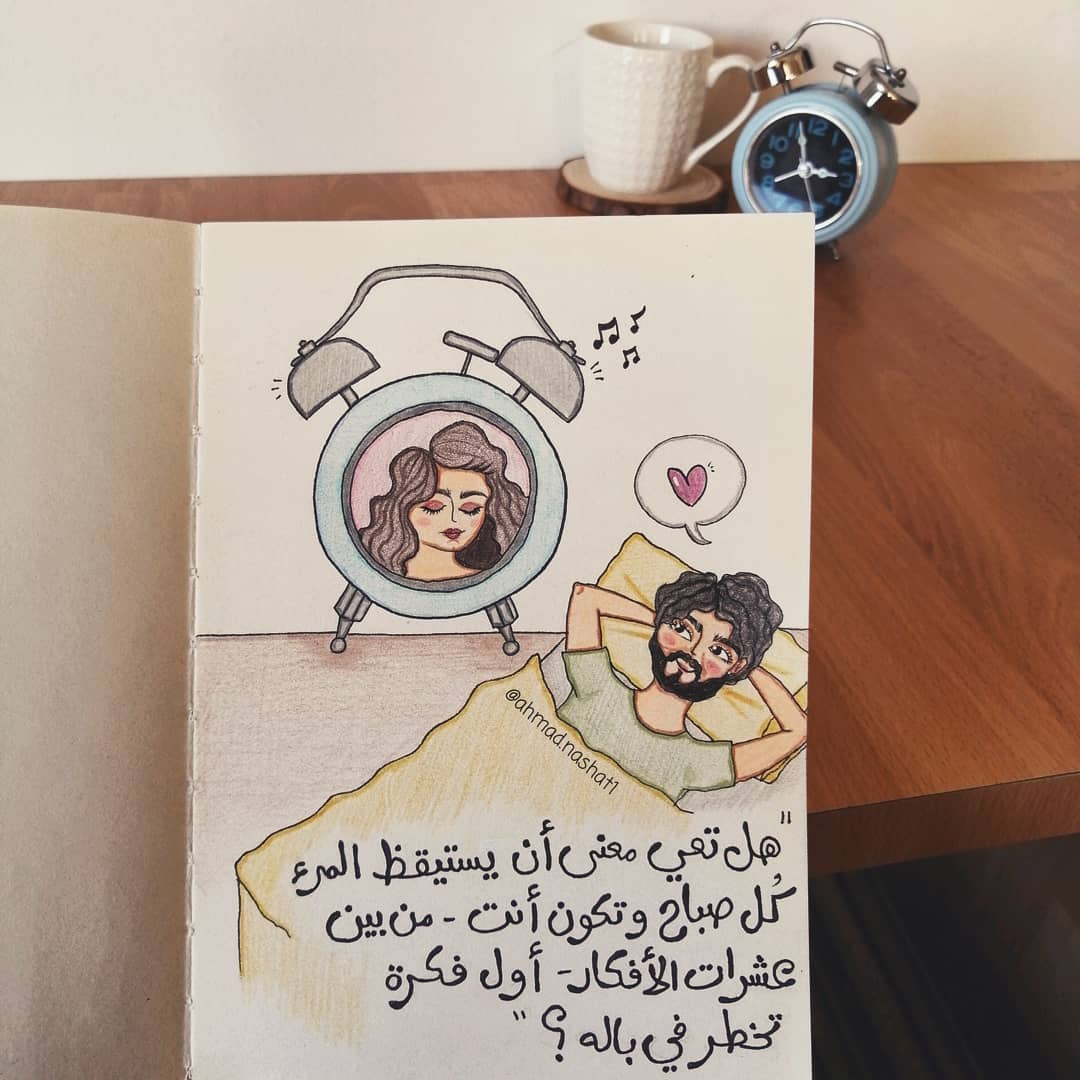 @ahmad.nashat1
"هل تعي معنى أن يستيقظ المرء
كُل صباح وتكون أنت - من بين
عشرات الأفكار - أول فكرة
تخطر في باله ؟"